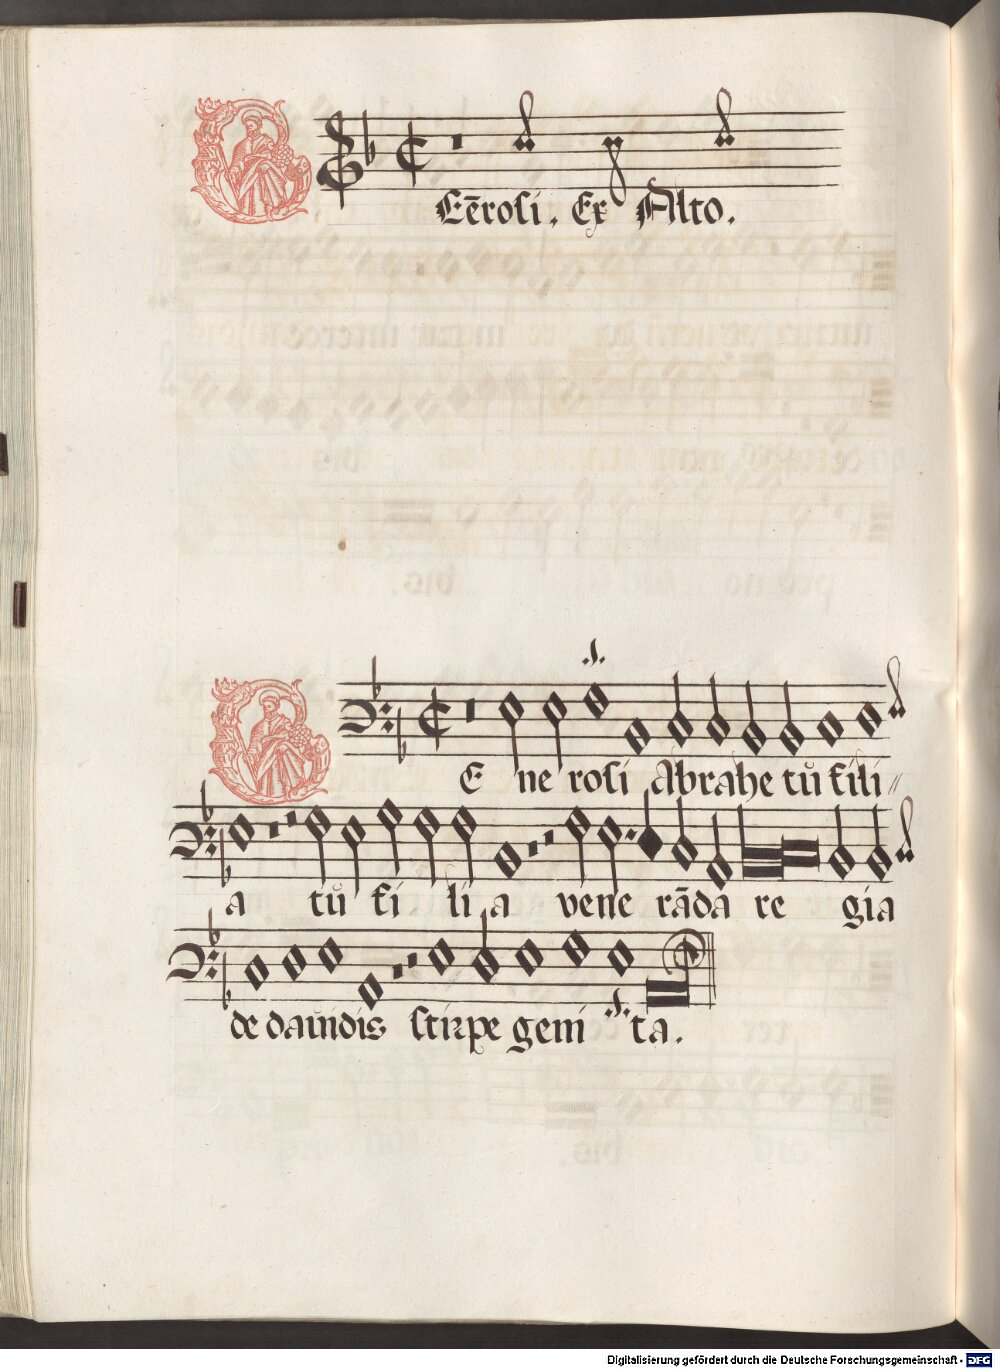 GEe̅rosi. Ex Alto.
GE ne rosi Abrahe tu̇ fili
a tu̇ fi li a vene rāda re gia
de dauidis stirpe geni ta.
Digitalisierung gefördert durch die Deutsche Forschungsgemeinschaft - DFG